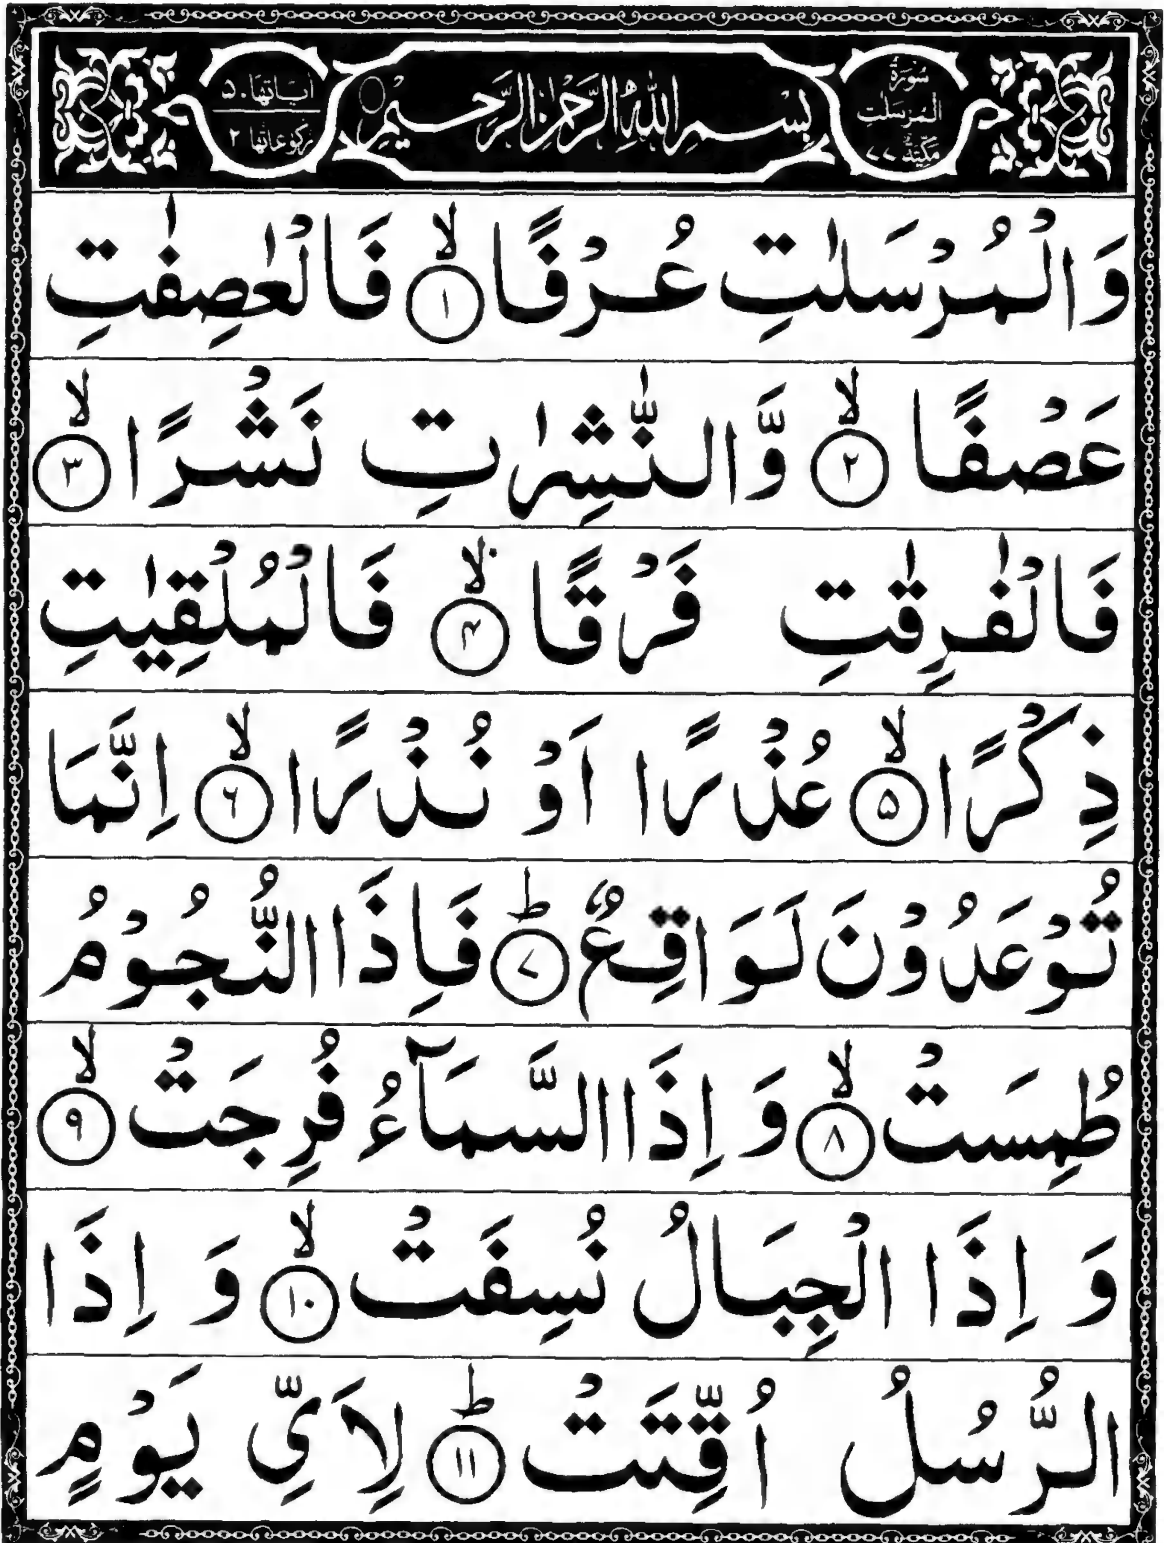 سُوْرَةُ
الْمُرْسَلٰتِ
مَكِّيَّةٌ ٧٧
بِسْمِ اللّٰهِ الرَّحْمٰنِ الرَّحِيْمِ
اٰيَاتُهَا ٥٠
رُكُوْعَاتُهَا ٢
وَالْمُرْسَلٰتِ عُرْفًا ۙ﴿١﴾ فَالْعٰصِفٰتِ
عَصْفًا ۙ﴿٢﴾ وَّالنّٰشِرٰتِ نَشْرًا ۙ﴿٣﴾
فَالْفٰرِقٰتِ فَرْقًا ۙ﴿۴﴾ فَالْمُلْقِيٰتِ
ذِكْرًا ۙ﴿۵﴾ عُذْرًا اَوْ نُذْرًا ۙ﴿۶﴾ اِنَّمَا
تُوْعَدُوْنَ لَوَاقِعٌ ؕ﴿۷﴾ فَاِذَا النُّجُوْمُ
طُمِسَتْ ۙ﴿٨﴾ وَ اِذَا السَّمَآءُ فُرِجَتْ ۙ﴿٩﴾
وَ اِذَا الْجِبَالُ نُسِفَتْ ۙ﴿١٠﴾ وَ اِذَا
الرُّسُلُ اُقِّتَتْ ؕ﴿١١﴾ لِاَيِّ يَوْمٍ